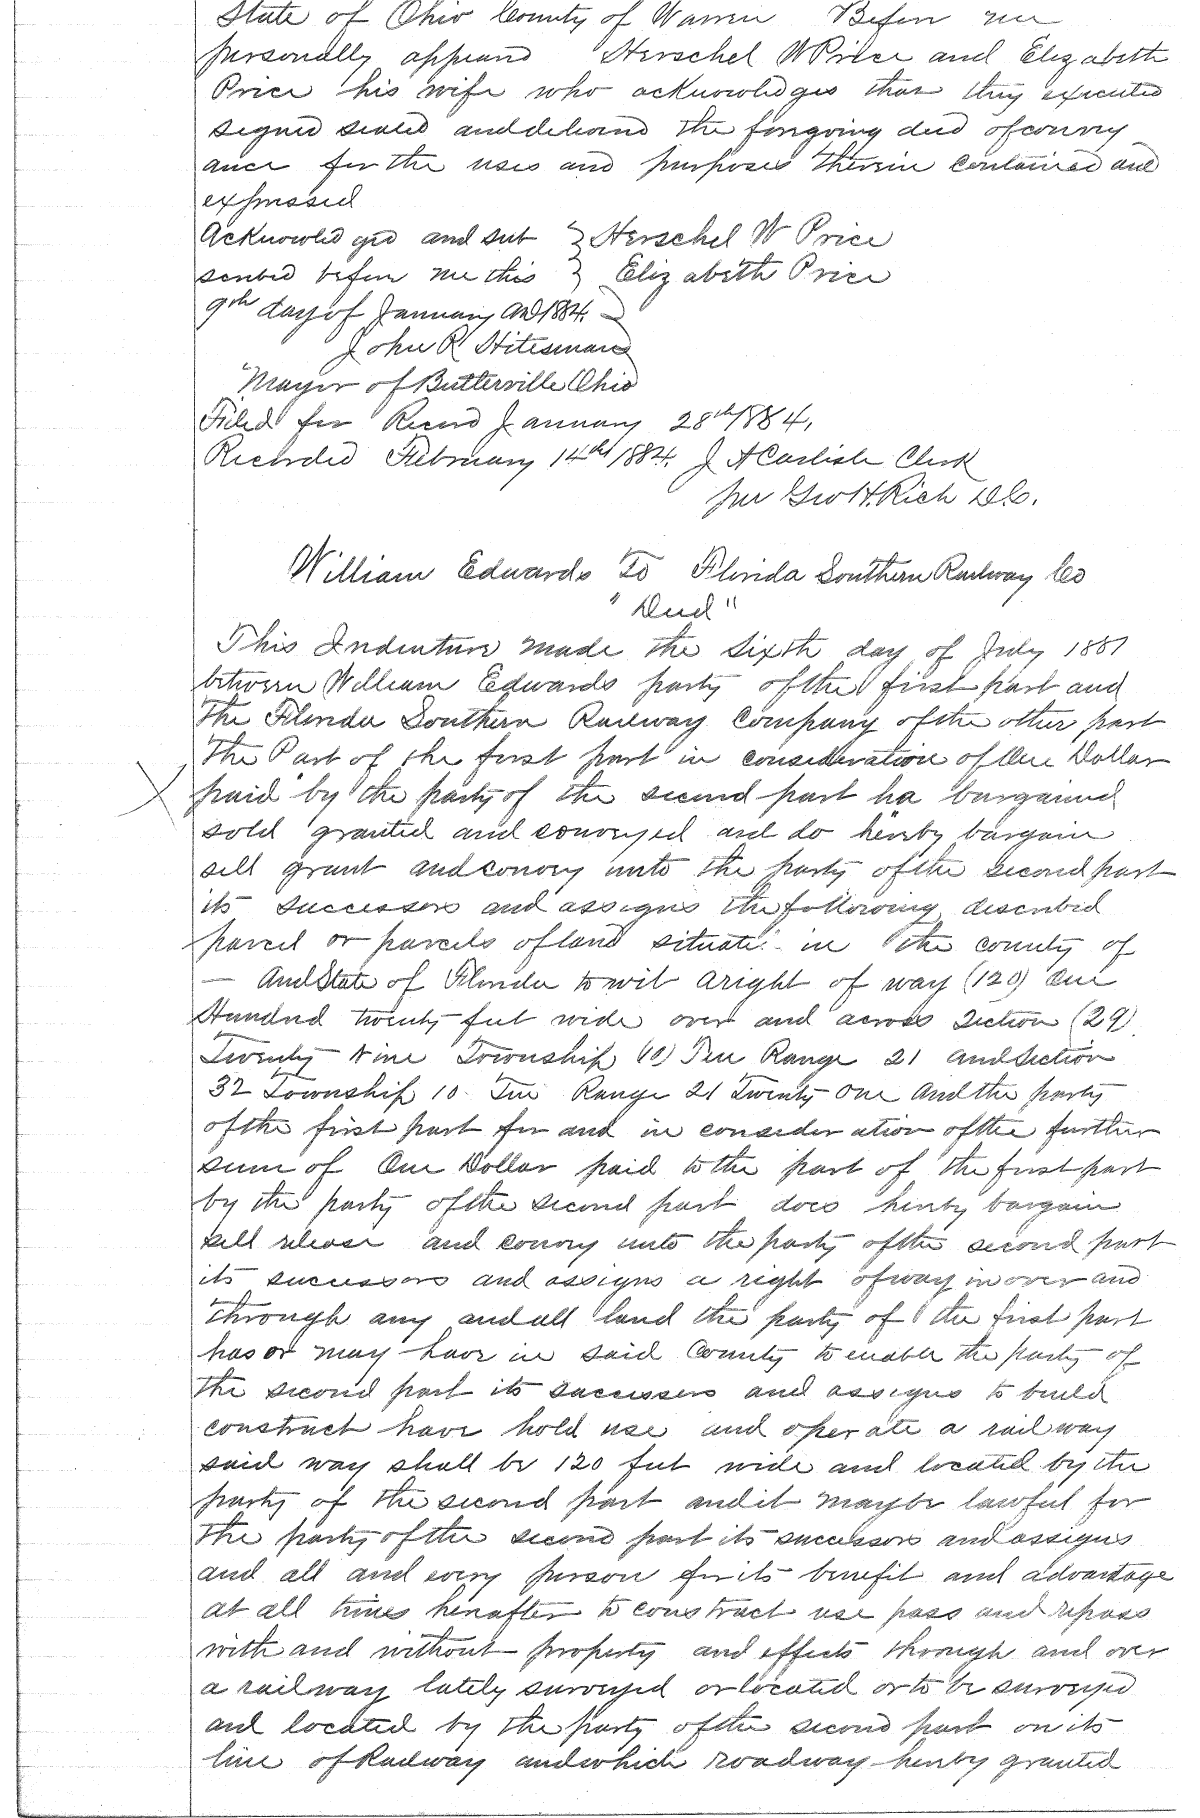 State of Ohio County of Warren Before me
personally appeared Herschel W Price and Elizabeth
Price his wife who acknowledges that they executed
signed sealed and delivered the foregoing deed of convey
ance for the uses and purposes therein contained and
expressed
Acknowledged and sub } Herschel W Price
scribed before me this } Elizabeth Price
9th day of January AD 1884.
John R Hitesman
Mayor of Butlerville Ohio
Filed for Record January 28th 1884,
Recorded February 14th 1884. J A Carlisle Clerk
per Geo H. Rich D.C.
William Edwards To Florida Southern Railway Co
"Deed"
This Indenture made the sixth day of July 1881
between William Edwards party of the first part and
The Florida Southern Railway Company of the other part
The Part of the first part in consideration of One Dollar
paid by the party of the second part ha bargained
sold granted and conveyed and do hereby bargain
sell grant and convey unto the party of the second part
its successors and assigns the following described
parcel or parcels of land situate in the county of
— And State of Florida to wit a right of way (120) One
Hundred twenty feet wide over and across Section (29)
Twenty Nine Township (10) Ten Range 21 and Section
32 Township 10 Ten Range 21 Twenty One And the party
of the first part for and in consideration of the further
sum of One Dollar paid to the part of the first part
by the party of the second part does hereby bargain
sell release and convey unto the party of the second part
its successors and assigns a right of way in over and
through any and all land the party of the first part
has or may have in said County to enable the party of
the second part its successors and assigns to build
construct have hold use and operate a railway
said way shall be 120 feet wide and located by the
party of the second part and it may be lawful for
the party of the second part its successors and assigns
and all and every person for its benefit and advantage
at all times hereafter to construct use pass and repass
with and without property and effects through and over
a railway lately surveyed or located or to be surveyed
and located by the party of the second part on its
line of Railway and which roadway hereby granted